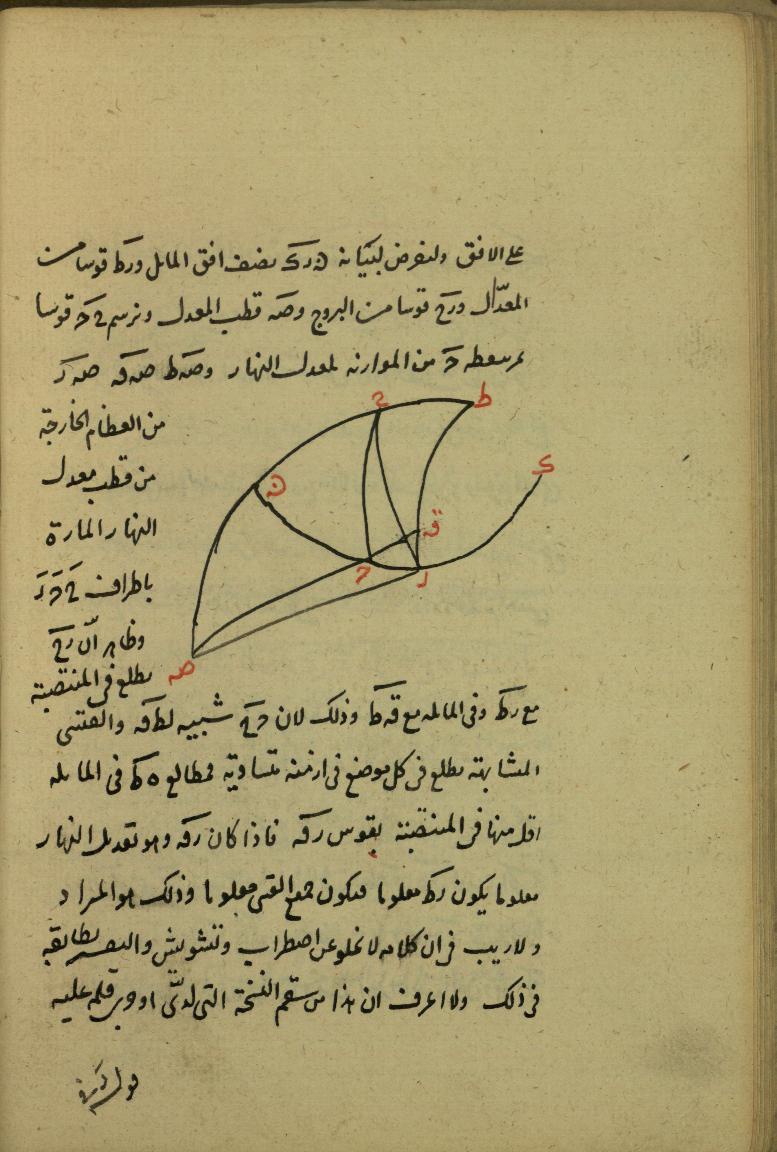 على الافق ولنفرض لبيانه ن ر ك نصف افق المائل و ر ط قوسا من
المعدّل و ر ح قوسا من البروج و صه قطب المعدل و نرسم ح قوسا
من الموازية لمعدل النهار و صه ط صه قه صه ر
ط
ح
ك
ن
قه
ر
صه
من العظام الخارجة
من قطب معدل
النهار المارة
باطراف
وظاهر انّ ر ح
يطلع فى المنتصبة
مع ر ط وفى المائلة مع قه ط وذلك لان ح شبيه لط قه والقسى
المشابهة يطلع فى كل موضع فى ازمنة متساوية فمطالع فى المائله
اقل منها فى المنتصبة بقوس ر قه فاذا كان ر قه وهو تعديل النهار
معلوما يكون ر ط معلوما فيكون جميع القسى معلوما وذلك هو المراد
ولا ريب فى ان كلامه لا يخلو عن اضطراب وتشويش
فى ذلك ولا اعرف ان هذا من سقم النسخة التى لدىّ او جرى قلمه عليه